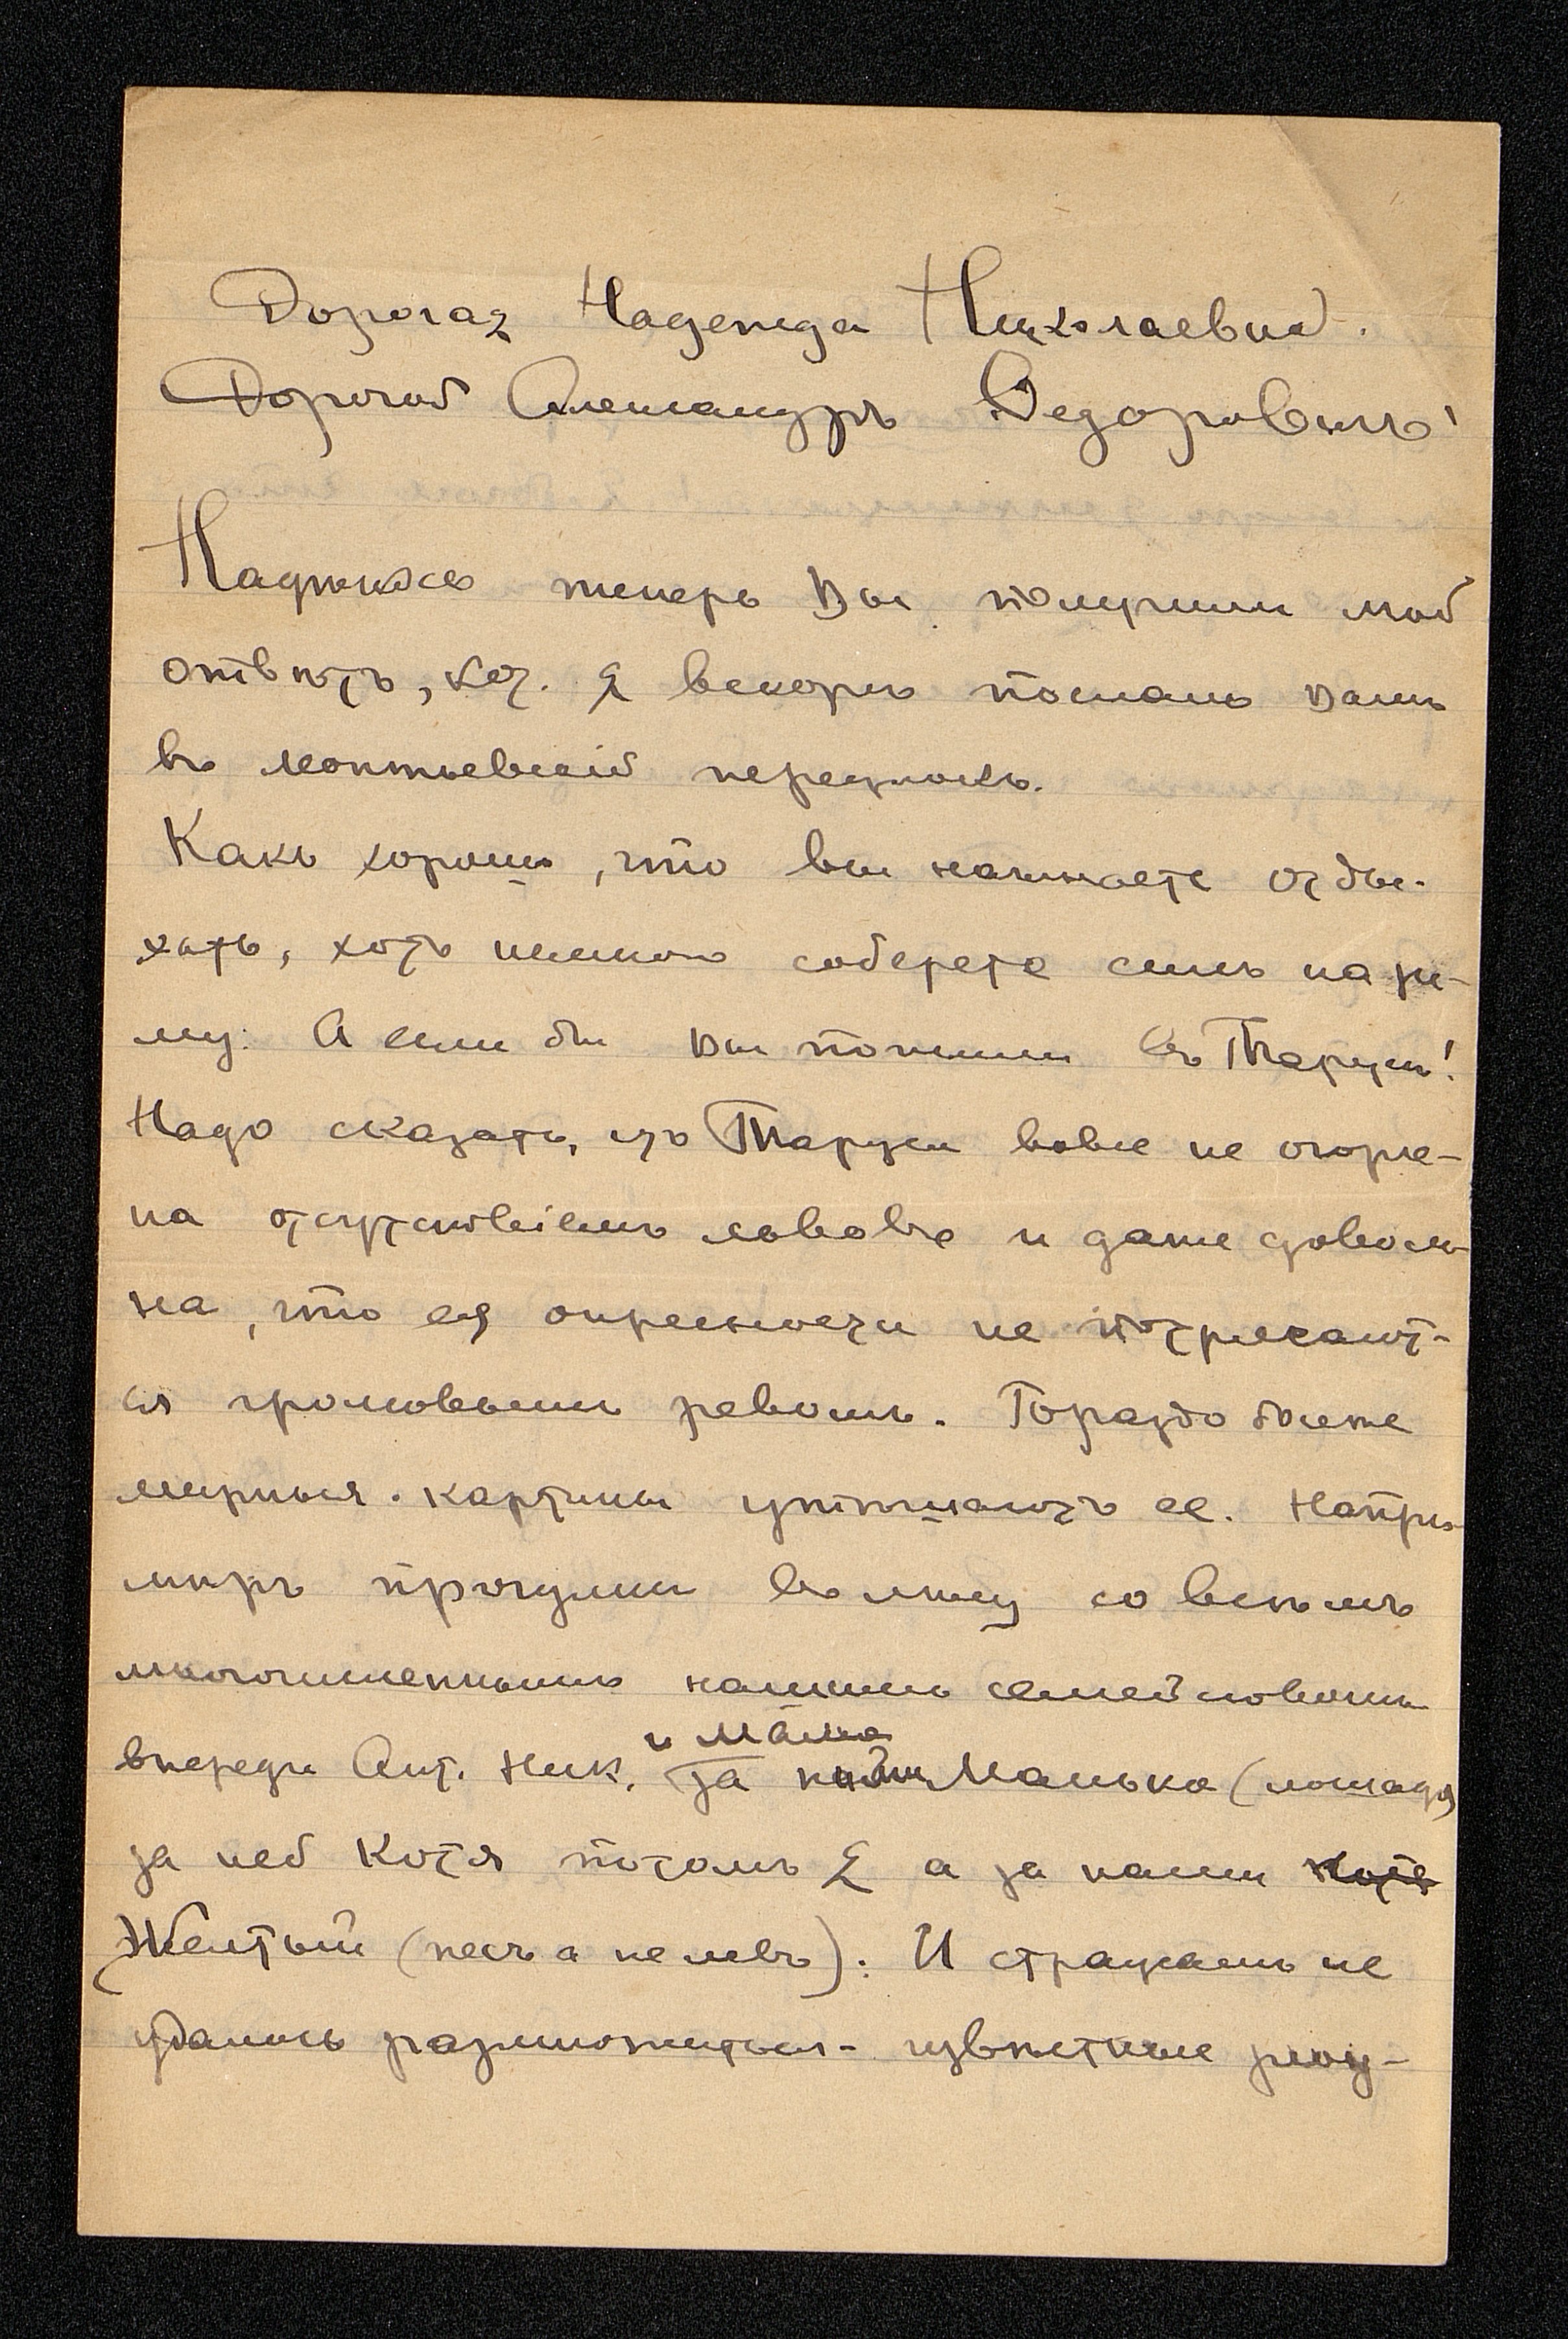 Дорогая Надежда Николаевна.
Дорогой Александръ Федоровичъ!
Надѣюсь теперь Вы получили мой
отвѣтъ, кот. я вскорѣ послалъ Вамъ
въ Леонтьевскій переулокъ.
Какъ хорошо, что вы начинаете отды-
хать, хоть немного соберете силъ на зи-
му. А если бы Вы пожили въ Тарусѣ!
Надо сказать, что Таруса вовсе не огорче-
на отсутствіемъ львовъ и даже доволь-
на, что ея окрестности не потрясают-
ся громовымъ ревомъ. Гораздо болѣе
мирныя картины утѣшаютъ ее. Напри-
мѣръ прогулки въ лѣсу со всѣмъ
многочисленнымъ нашимъ семействомъ
впереди Ант. Ник. и Маша за Манька (лошадь)
за ней Котя потомъ Я а за нами Котя
Желтый (песъ а не левъ). И страусамъ не
удалось размножиться - извѣстные